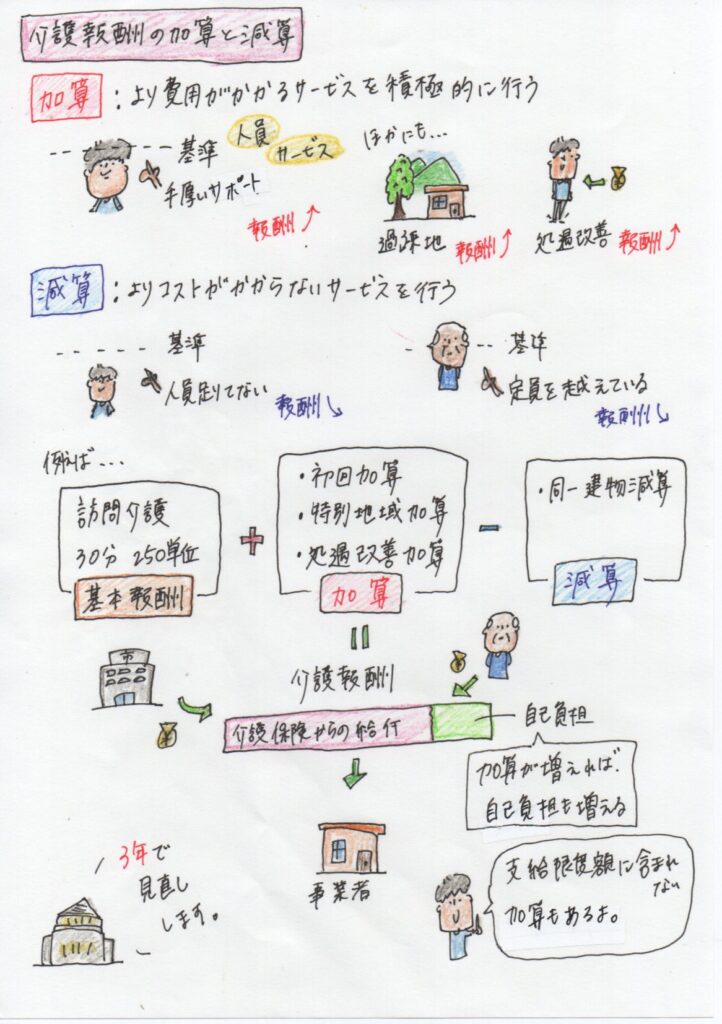 介護報酬の加算と減算
加算：より費用がかかるサービスを積極的に行う
基準
人員
サービス
手厚いサポート
報酬↑
ほかにも…
過疎地
報酬↑
処遇改善
報酬↑
減算：よりコストがかからないサービスを行う
基準
人員足りてない
報酬↓
基準
定員を越えている
報酬↓
例えば…
訪問介護
30分 250単位
基本報酬
+
・初回加算
・特別地域加算
・処遇改善加算
加算
-
・同一建物減算
減算
=
介護報酬
市
介護保険からの給付
自己負担
加算が増えれば、
自己負担も増える
事業者
3年で
見直し
します。
支給限度額に含まれ
ない
加算もあるよ。